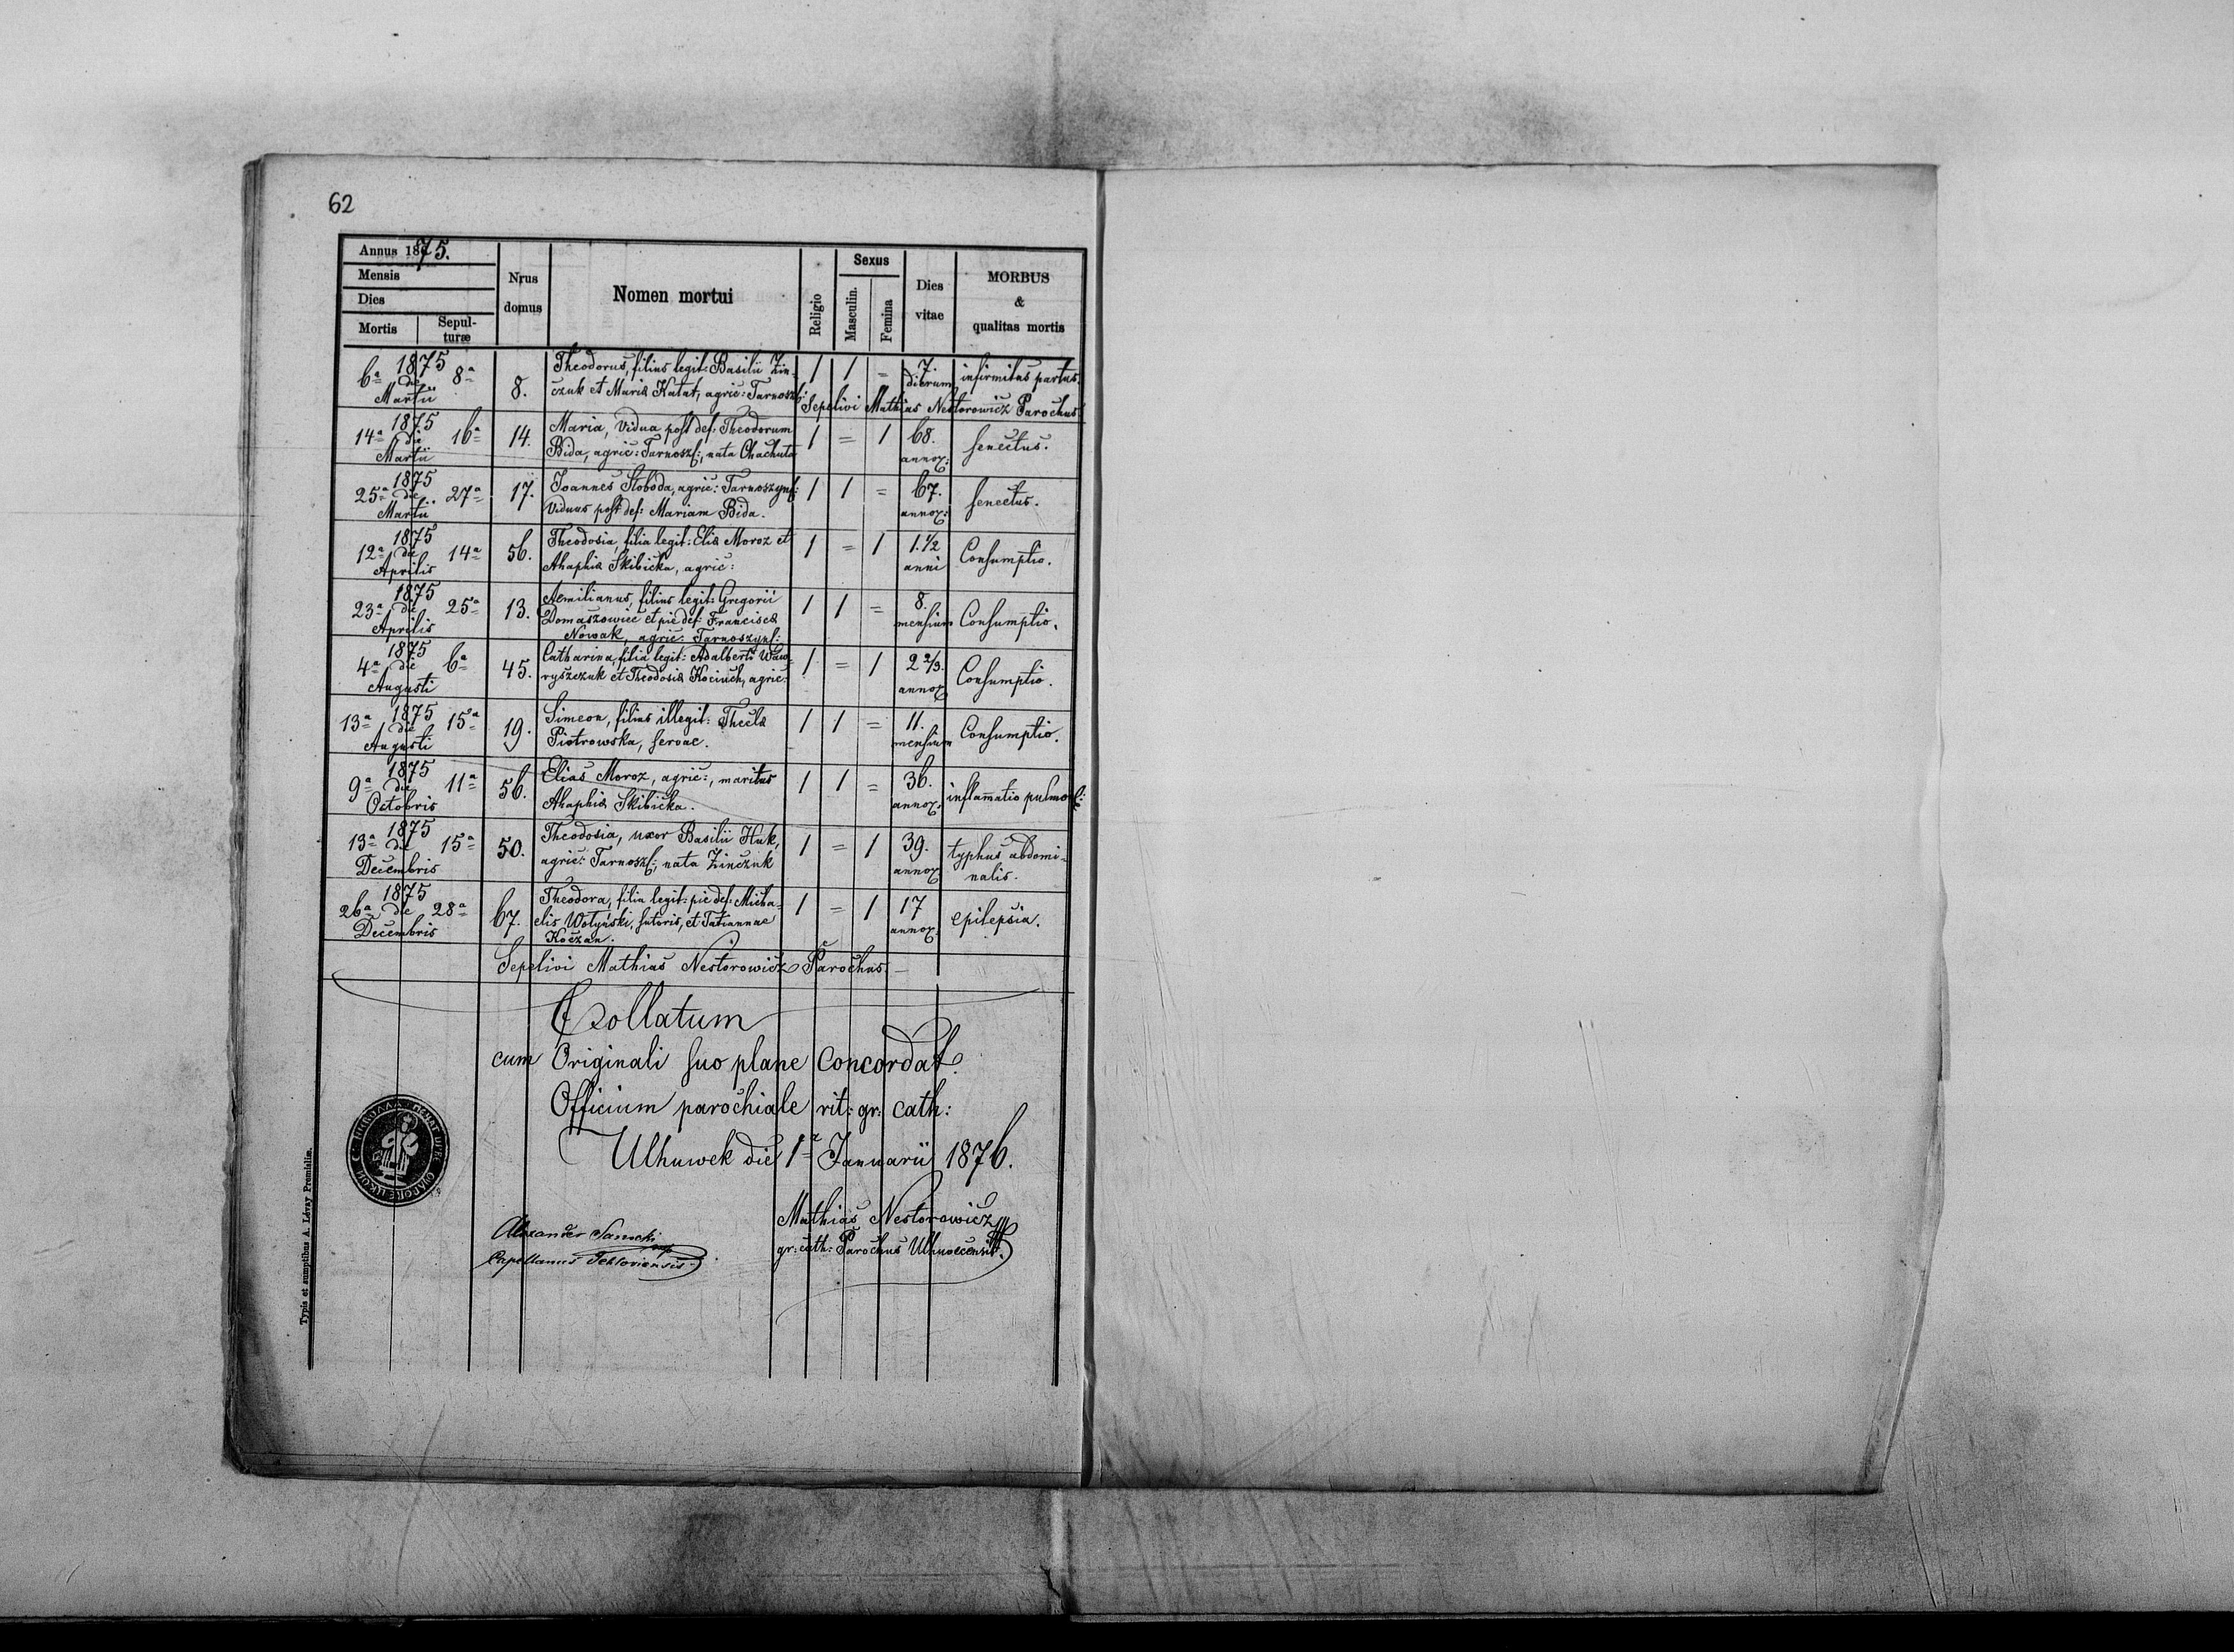 62
Annus 1875.
Mensis
Dies
Mortis
Sepul-
turæ
Nrus
domus
Nomen mortui
Religio
Sexus
Masculin.
Femina
Dies
vitae
MORBUS
&
qualitas mortis
1875
6ª die 8ª
Martii
8.
Theodorus, filius legit: Basilii Zin-
czuk et Mariæ Katat, agric: Tarnosz:
1 1 =
7.
dierum
infirmitas partus.
Sepelivi Mathias Nestorowicz Parochus
1875
14ª die 16ª
Martii
14.
Maria, Vidua post def: Theodorum
Bida, agric: Tarnosz:, nata Chachuta
1 = 1
68.
annor:
senectus.
1875
25ª die 27ª
Martii
17.
Joannes Stoboda, agric: Tarnoszyns:
Viduus post def: Mariam Bida.
1 1 =
67.
annor:
senectus.
1875
12ª die 14ª
Aprilis
56.
Theodosia, filia legit: Eliæ Moroz et
Ahaphiæ Skibicka, agric:
1 = 1
1.1/2
anni
Consumptio.
1875
23ª die 25ª
Aprilis
13.
Aemilianus, filius legit: Gregorii
Domaszowiec et pie def: Franciscæ
Nowak, agric: Tarnoszyns:
1 1 =
8.
mensium
Consumptio.
1875
4ª die 6ª
Augusti
45.
Catharina, filia legit: Adalberti Waw-
ryszczuk et Theodosiæ Kociuch, agric:
1 = 1
2 2/3.
annor
Consumptio.
1875
13ª die 15ª
Augusti
19.
Simeon, filius illegit: Theclæ
Piotrowska, servae.
1 1 =
11.
mensium
Consumptio.
1875
9ª die 11ª
Octobris
56.
Elias Moroz, agric:, maritus
Ahaphiæ Skibicka.
1 1 =
36.
annor:
inflamatio pulmon:
1875
13ª die 15ª
Decembris
50.
Theodosia, uxor Basilii Huk,
agric: Tarnosz:, nata Zinczuk
1 = 1
39.
annor
typhus abdomi-
nalis.
1875
26ª die 28ª
Decembris
67.
Theodora, filia legit: pie def: Micha-
elis Wołyński, sutoris, et Tatiannae
Koczan.
1 = 1
17
annor
epilepsia.
Sepelivi Mathias Nestorowicz Parochus.
Collatum
cum Originali suo plane Concordat.
Officium parochiale rit: gr: cath:
Ulhuwek die 1ª Januarii 1876.
Mathias Nestorowicz
gr: cath: Parochus Ulhuvecensis.
Alexander Sanocki
Capellanus
Typis et sumptibus A. Lévay Premisliæ.